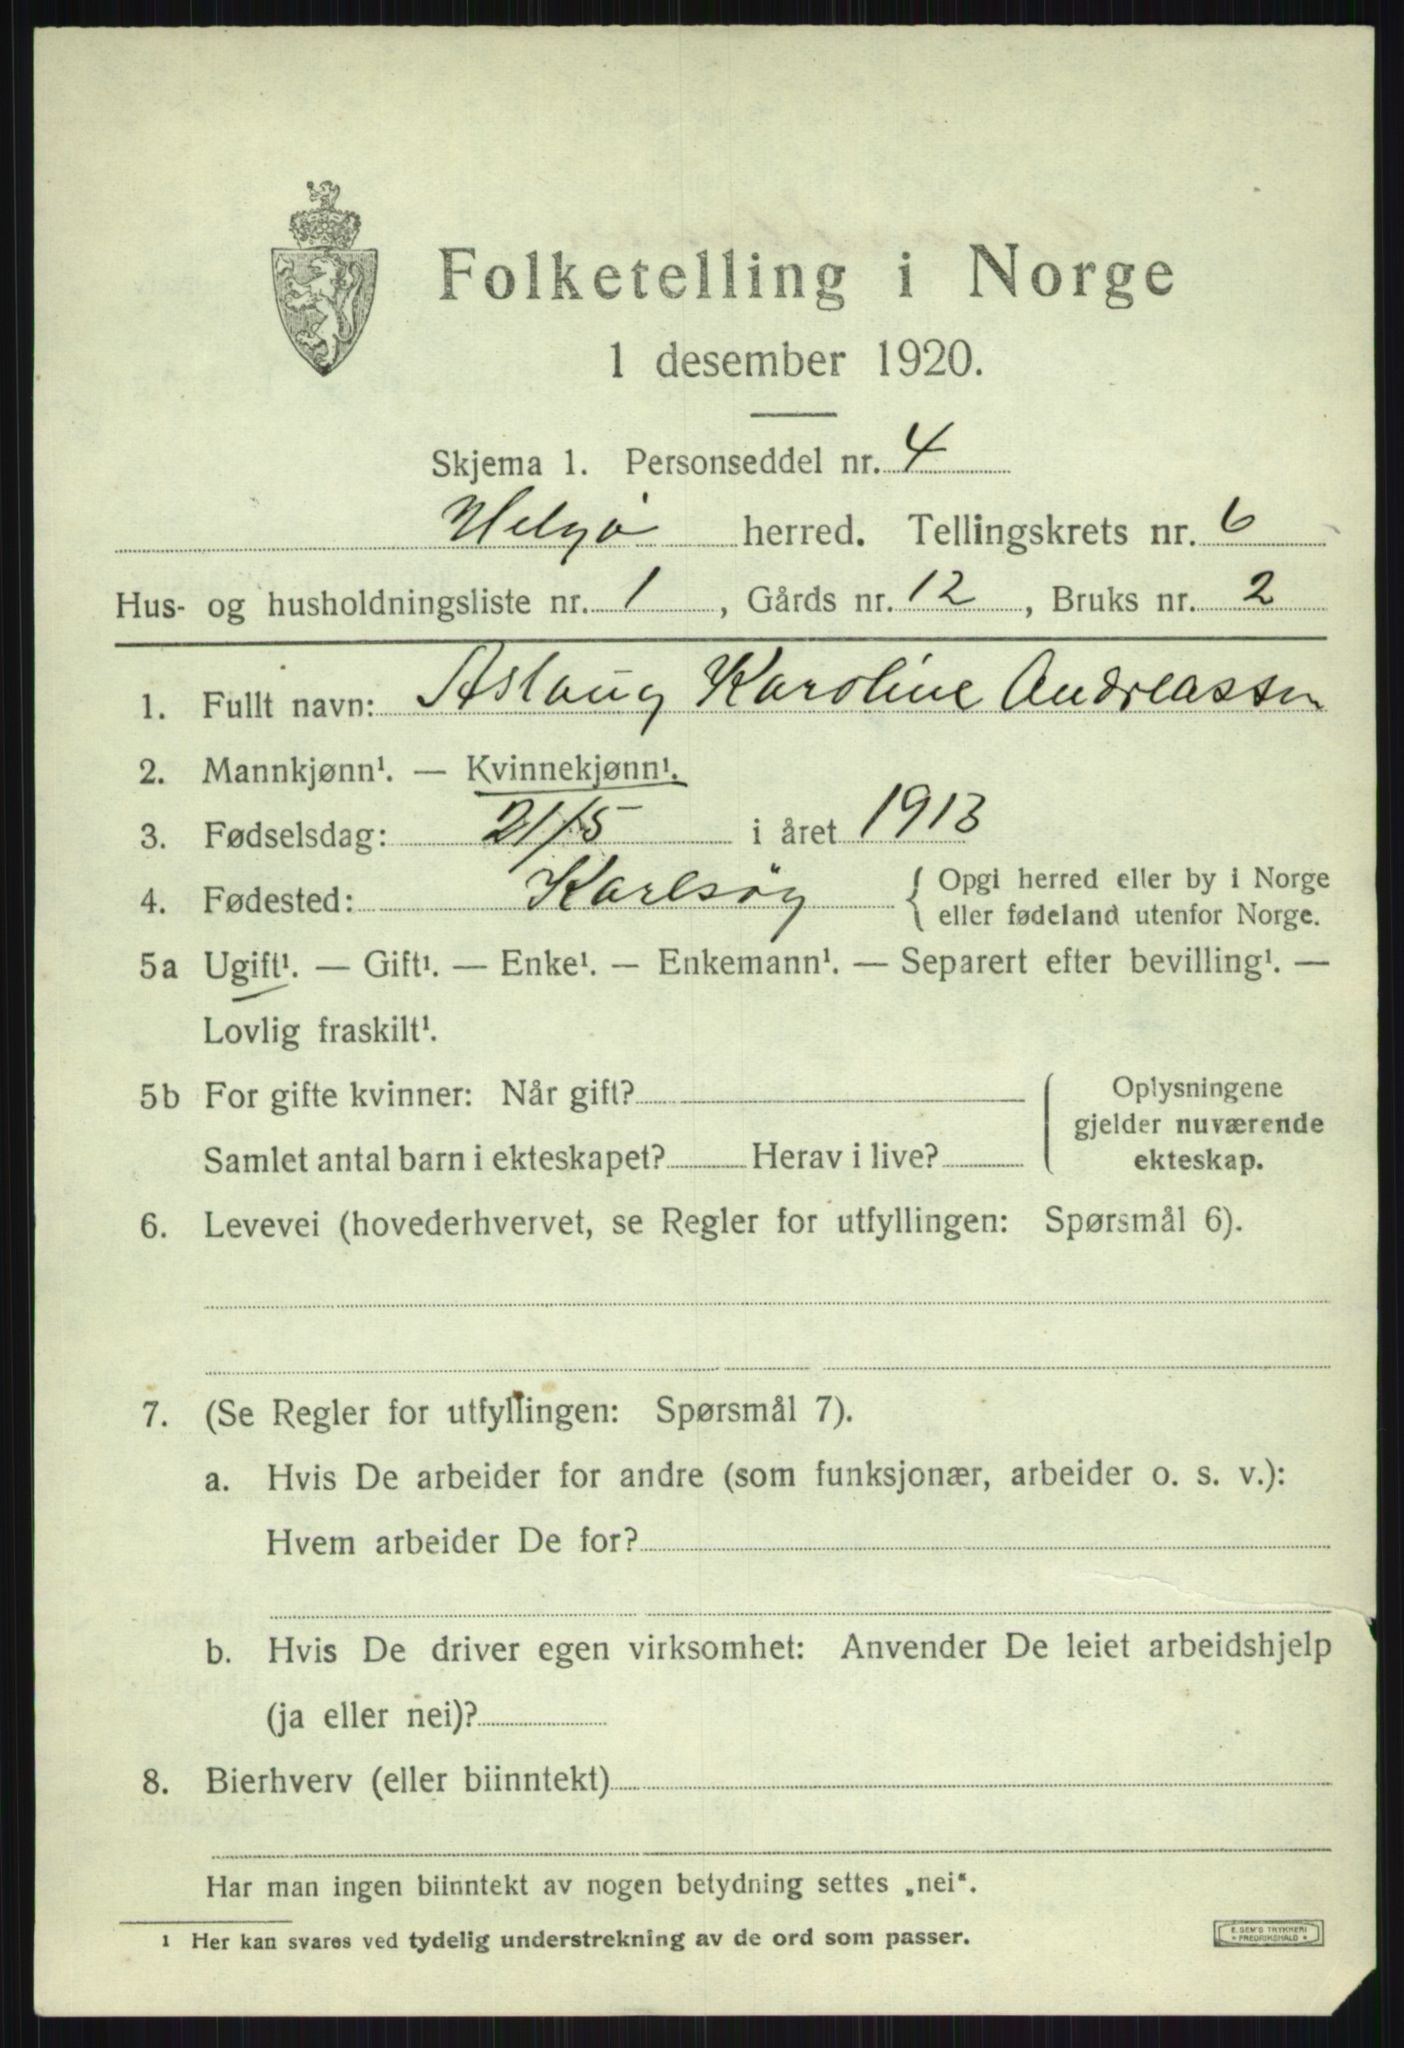 Folketelling i Norge
1 desember 1920.
Skjema 1. Personseddel nr. 4
Helgö herred. Tellingskrets nr. 6
Hus- og husholdningsliste nr. 1, Gårds nr. 12, Bruks nr. 2
1. Fullt navn: Aslaug Karoline Andreassen
2. Mannkjønn¹. — Kvinnekjønn¹.
3. Fødselsdag: 21/5 i året 1913
4. Fødested: Karlsöy { Opgi herred eller by i Norge
eller fødeland utenfor Norge.
5a Ugift¹. — Gift¹. — Enke¹. — Enkemann¹. — Separert efter bevilling¹. —
Lovlig fraskilt¹.
5b For gifte kvinner: Når gift?
Samlet antal barn i ekteskapet? Herav i live?
Oplysningene
gjelder nuværende
ekteskap.
6. Levevei (hovederhvervet, se Regler for utfyllingen: Spørsmål 6).
7. (Se Regler for utfyllingen: Spørsmål 7).
a. Hvis De arbeider for andre (som funksjonær, arbeider o. s. v.):
Hvem arbeider De for?
b. Hvis De driver egen virksomhet: Anvender De leiet arbeidshjelp
(ja eller nei)?
8. Bierhverv (eller biinntekt)
Har man ingen biinntekt av nogen betydning settes „nei“.
¹ Her kan svares ved tydelig understrekning av de ord som passer.
E. SEM'S TRYKKERI
* FREDRIKSHALD *